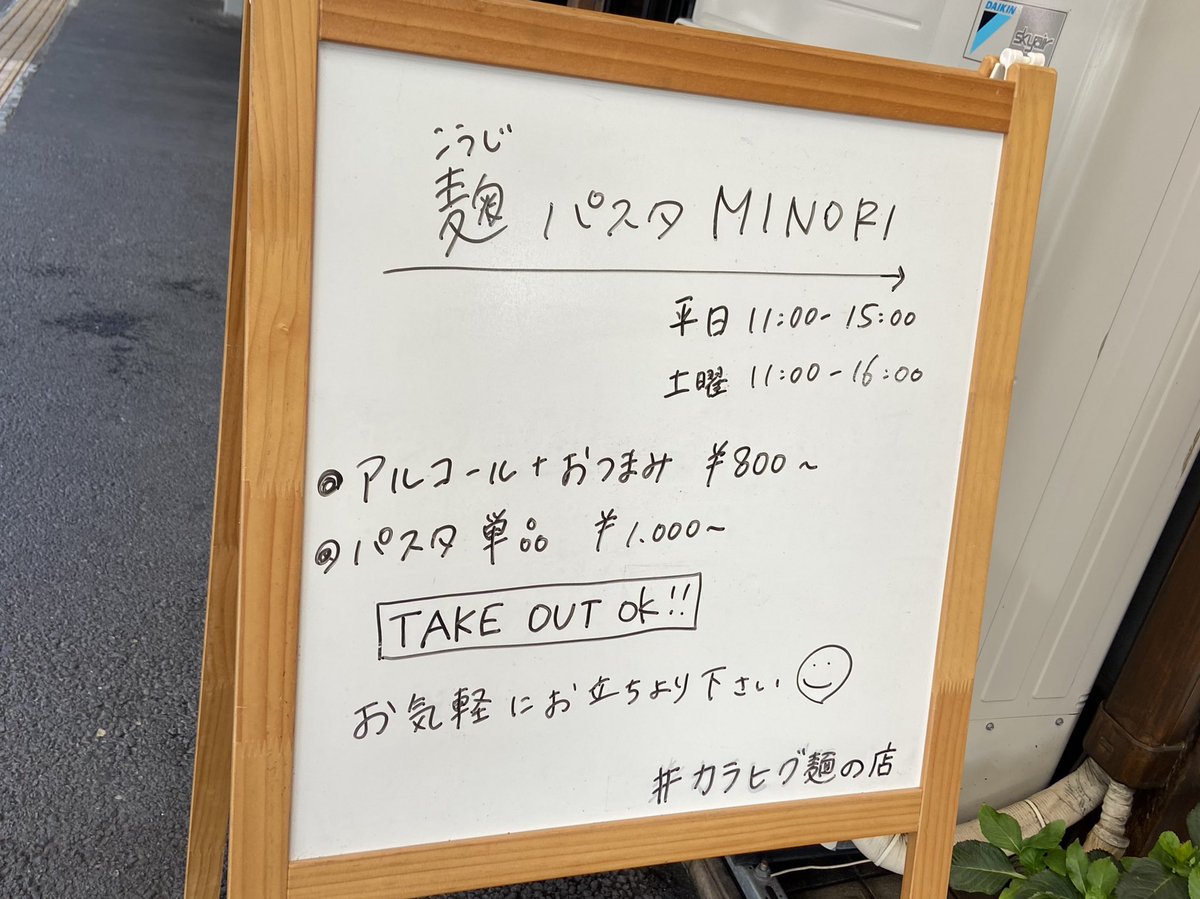 DAIKIN
skyair
こうじ
麹 パスタ MINORI
平日 11:00-15:00
土曜 11:00-16:00
◎ アルコール+おつまみ ¥800~
◎ パスタ 単品 ¥1.000~
TAKE OUT OK!!
お気軽にお立ちより下さい
#カラヒグ麺の店